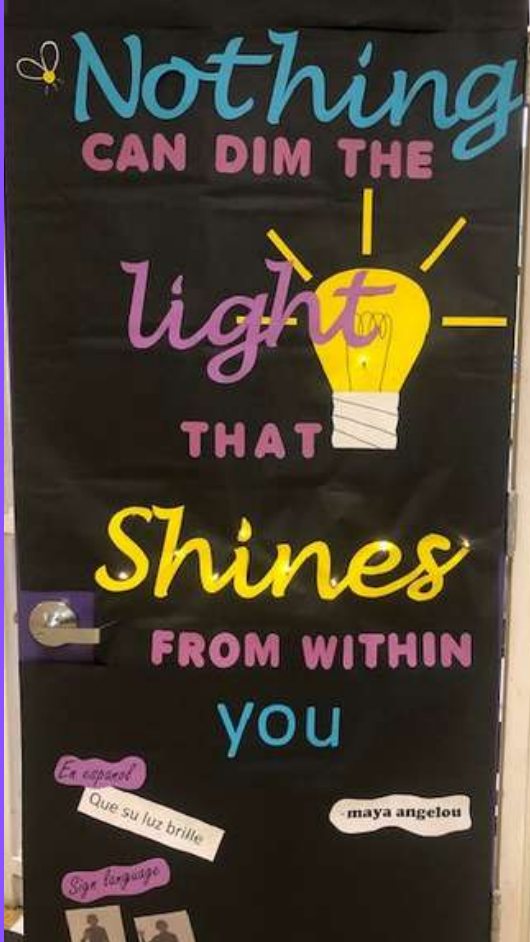 Nothing
CAN DIM THE
light
THAT
Shines
FROM WITHIN
you
En espanol
Que su luz brille
-maya angelou
Sign language